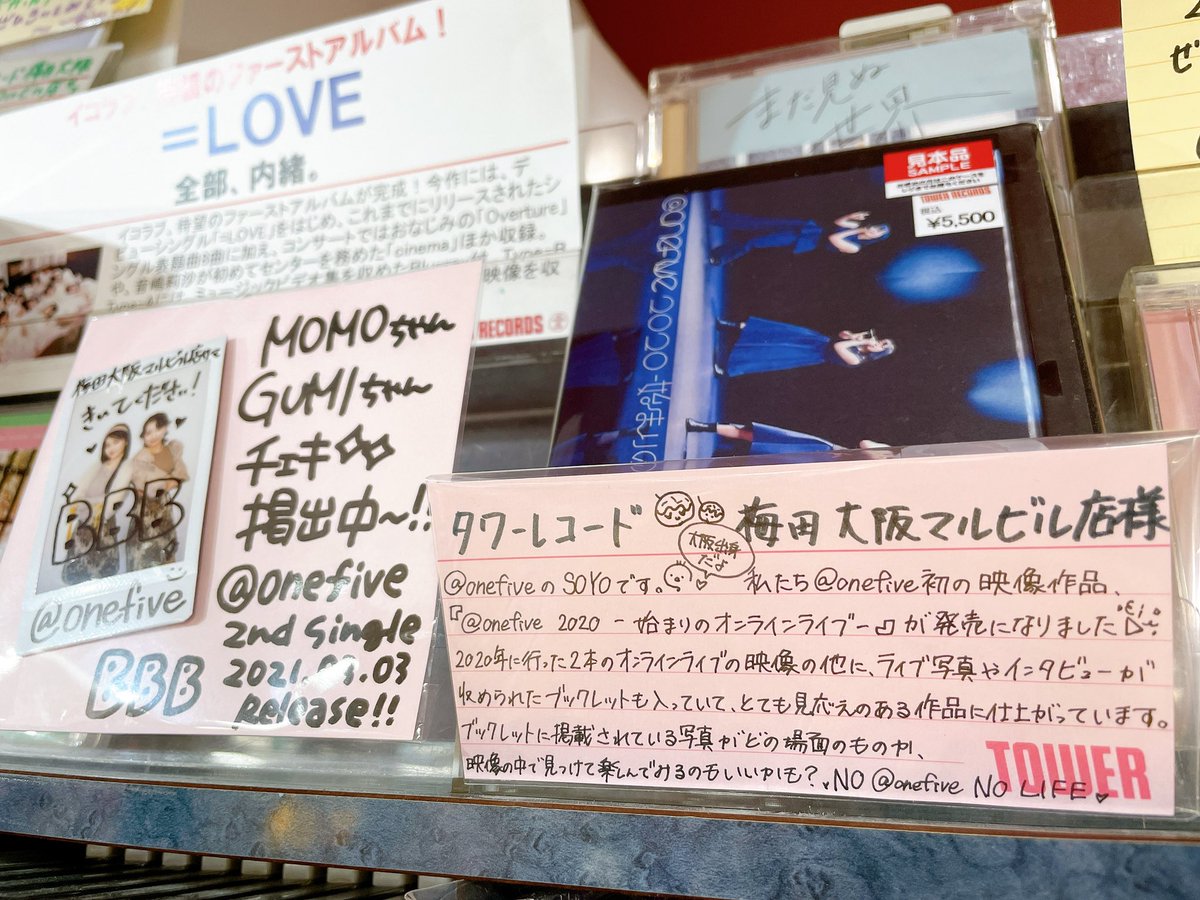 イコラブ、待望のファーストアルバム!
=LOVE
全部、内緒。
イコラブ、待望のファーストアルバムが完成!今作には、デ
ビューシングル「=LOVE」をはじめ、これまでにリリースされたシ
ングル表題曲8曲に加え、コンサートではおなじみの「Overture」
や、音嶋莉沙が初めてセンターを務めた「cinema」ほか収録。
RECORDS
まだ見ぬ
世界
見本品
SAMPLE
TOWER RECORDS
税込
¥5,500
@onefive 2020 -始まりの
梅田大阪マルビル店さんで
きいてください!
BBB
@onefive
MOMOちゃん
GUMIちゃん
チェキ
掲出中〜!!
@onefive
2nd Single
2021.03.03
Release!!
BBB
タワーレコード 梅田大阪マルビル店様
大阪出身
だよ
@onefiveのSOYOです。 私たち@onefive初の映像作品、
『@onefive 2020 -始まりのオンラインライブ-』が発売になりました
2020年に行った2本のオンラインライブの映像の他に、ライブ写真やインタビューが
収められたブックレットも入っていて、とても見応えのある作品に仕上がっています。
ブックレットに掲載されている写真がどの場面のものか、
映像の中で見つけて楽しんでみるのもいいかも? NO @onefive NO LIFE
TOWER